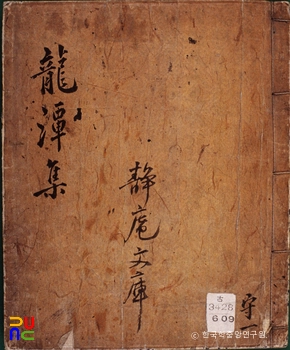 龍潭集
靜庵文庫
守
古
3428
609
ⓒ 한국학중앙연구원